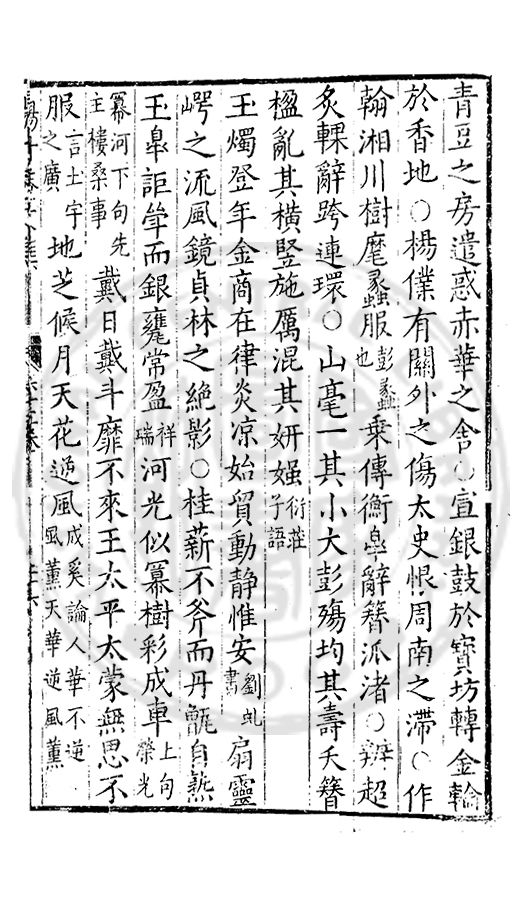 青豆之房遣惑赤華之舍○宣銀鼓於寶坊轉金輪
於香地○楊僕有關外之傷太史恨周南之滯○作
翰湘川樹麾蠡服彭蠡也乘傳衡皐辭簪派渚○辨超
炙輠辭跨連環○山毫一其小大彭殤均其壽夭簪
楹亂其橫竪施厲混其妍媸衍莊子語
玉燭登年金商在律炎凉始貿動静惟安劉虬書扃靈
崿之流風鏡貞林之絶影○桂薪不斧而丹甑自𤍠
玉皐詎耸而銀甕常盈祥瑞河光似冪樹彩成車上句榮光
冪河下句先主樓桑事戴日戴斗靡不來王太平太蒙無思不
服言土宇之廣地芝候月天花逆風成奚論人華不逆風薰天華逆風薰